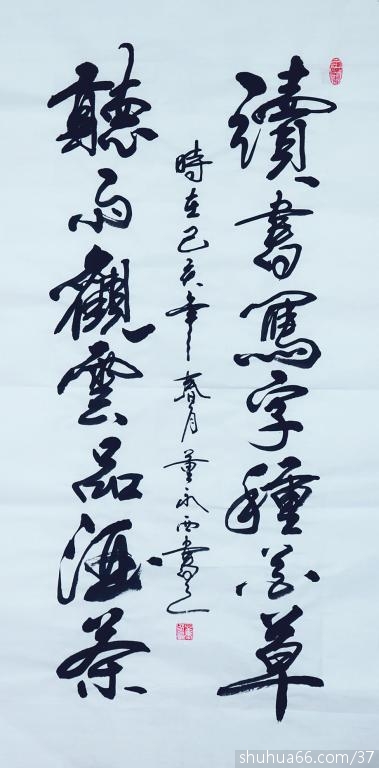 讀書寫字種花草
聽雨觀雲品酒茶
時在己亥年春月董永西書之
shuhua66.com/37